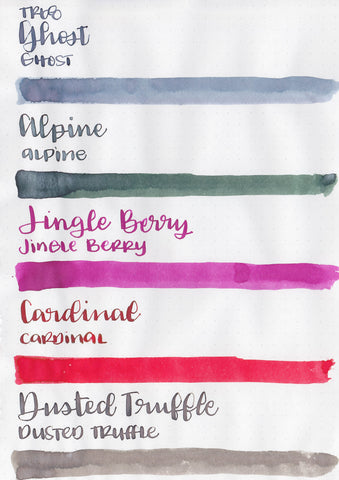 TRUE
Ghost
GHOST
Alpine
ALPINE
Jingle Berry
JINGLE BERRY
Cardinal
CARDINAL
Dusted Truffle
DUSTED TRUFFLE